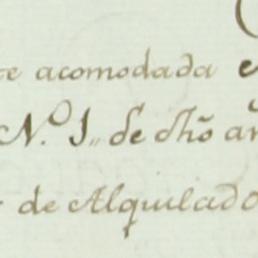 te acomodada
N.º 1,, de dhõ
de Alquilado